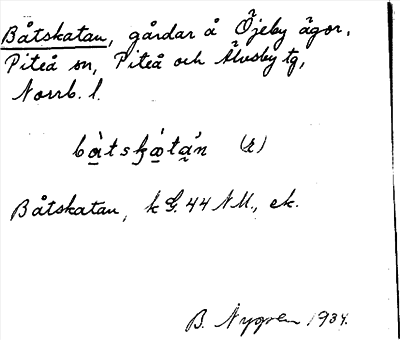 Båtskatan, gårdar å Öjeby ägor,
Piteå sn, Piteå och Älvsby tg,
Norrb. l.
bàtskátán (r)
Båtskatan, k G. 44 NM., ek.
B. Nygren 1934.